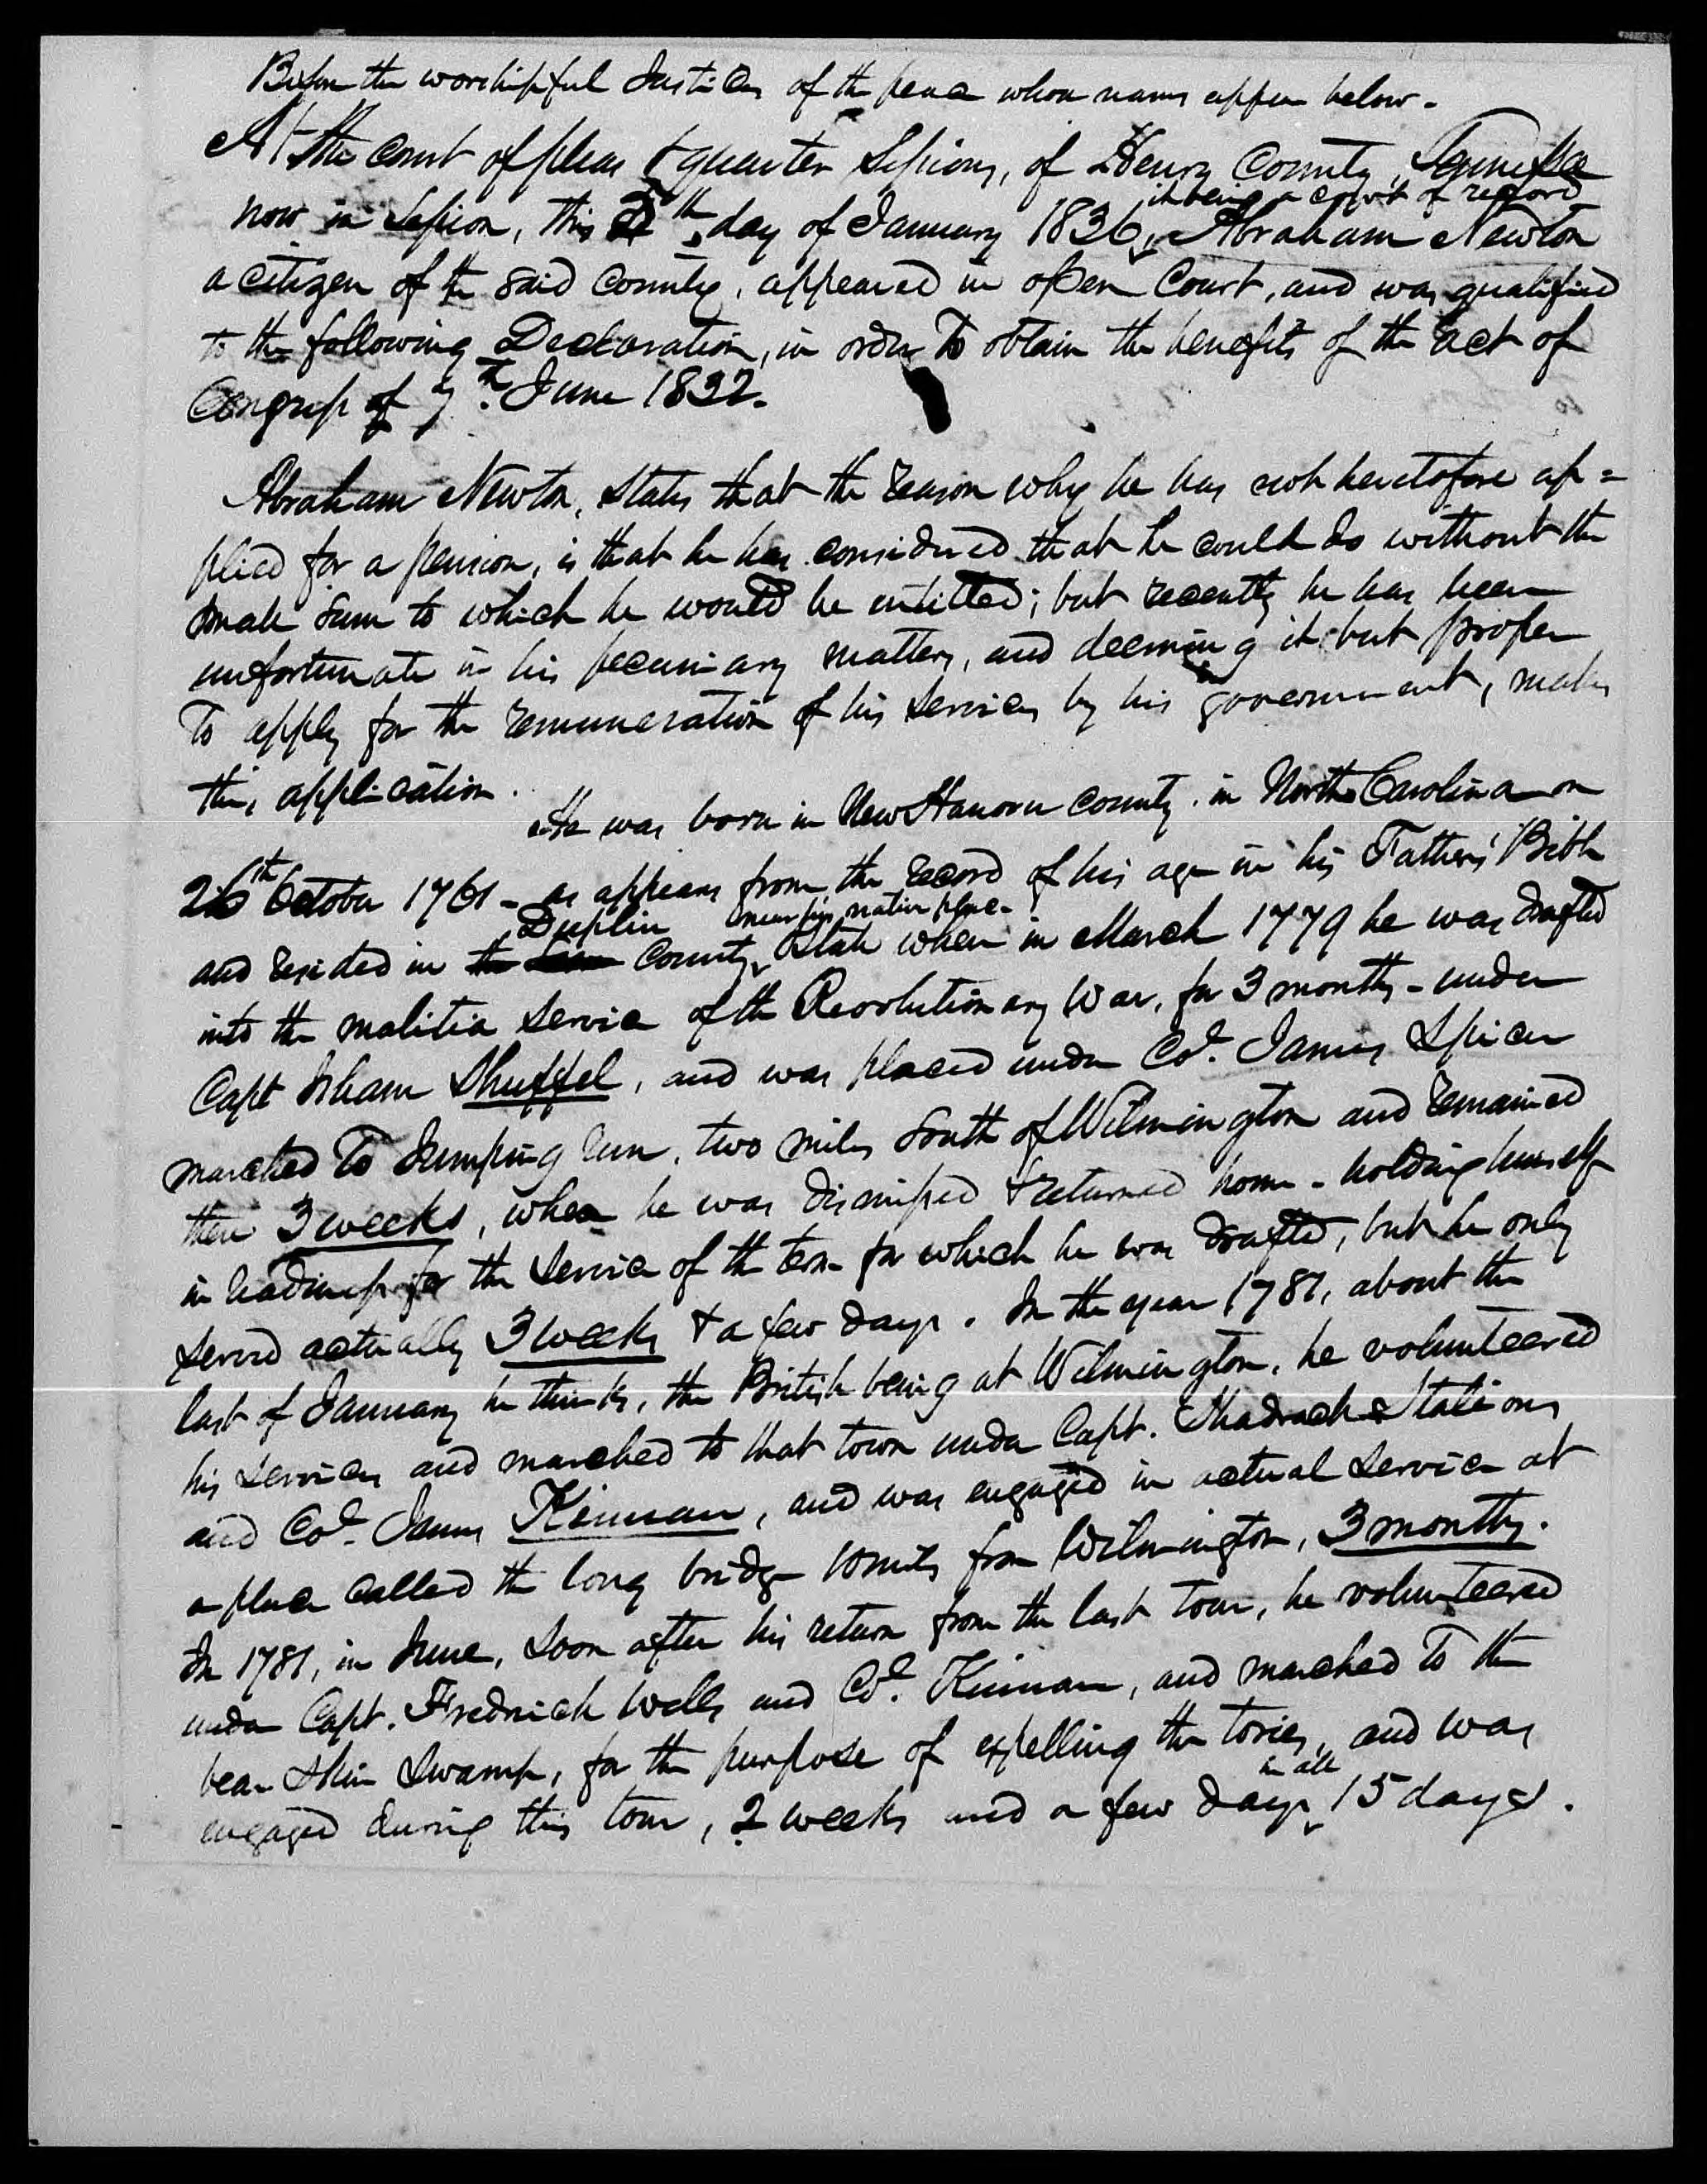 Before the worshipful Justices of the peace whose names appear below.
At the Court of pleas & quarter Sessions, of Henry County, Tennessee
it being a court of record
now in Session, this th day of January 1836, Abraham Newton
a citizen of the said County, appeared in open Court, and was qualified
to the following Declaration, in order to obtain the benefits of the act of
Congress of 7th June 1832.
Abraham Newton, states that the reason why he has not heretofore ap=
plied for a pension, is that he has considered that he could do without the
small sum to which he would be entitled; but recently he has been
unfortunate in his pecuniary matters, and deeming it but proper
To apply for the remuneration of his services by his government, makes
this application.
He was born in New Hanover county, in North Carolina on
26th October 1761 - as appears from the record of his age in his Father's Bible
Duplin near his native place-
and resided in the County, State when in March 1779 he was drafted
into the malitia service of the Revolutionary War, for 3 months - under
Capt Isham Shuffel, and was placed under Col. James Spicer
marched To Jumping run, two miles South of Wilmington and remained
there 3 weeks, when he was dismissed & returned home - holding himself
in readiness for the service of the term for which he was drafted, but he only
served actually 3 weeks & a few days. In the year 1781, about the
last of January he thinks, the British being at Wilmington, he volunteered
his services and marched to that town under Capt. Shadrach Stalions
and Col. James Kinnan, and was engaged in actual service at
a place called the long bridge 10 miles from Wilmington, 3 months.
In 1781, in June, soon after his return from the last tour, he volunteered
under Capt. Fredrick Wells and Col. Kinnan, and marched To the
bear skin Swamp, for the purpose of expelling the tories, and was
in all
engaged during this tour, 2 weeks and a few days, 15 days.